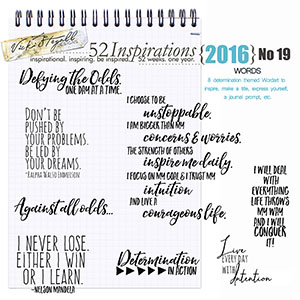 Vicki Stegall
52 Inspirations
inspirational. inspiring. be inspired. 52 weeks. one year.
2016 No 19
WORDS
A determination themed Wordart to
inspire, make a title, express yourself,
a journal prompt, etc.
Defying the Odds,
ONE DAY AT A TIME.
DON'T BE
PUSHED BY
YOUR PROBLEMS.
BE LED BY
YOUR DREAMS.
~RALPH WALDO EMERSON
I CHOOSE TO BE
unstoppable.
I AM BIGGER THAN MY
concerns & worries.
THE STRENGTH OF OTHERS
inspire me daily.
I FOCUS ON MY GOAL & I TRUST MY
intuition
AND LIVE A
courageous life.
Against all odds...
I NEVER LOSE.
EITHER I WIN
OR I LEARN.
~NELSON MANDELA
Determination
IN ACTION
I WILL DEAL
WITH
EVERYTHING
LIFE THROWS
MY WAY
AND I WILL
CONQUER
IT!
Live
EVERY DAY
WITH
Intention